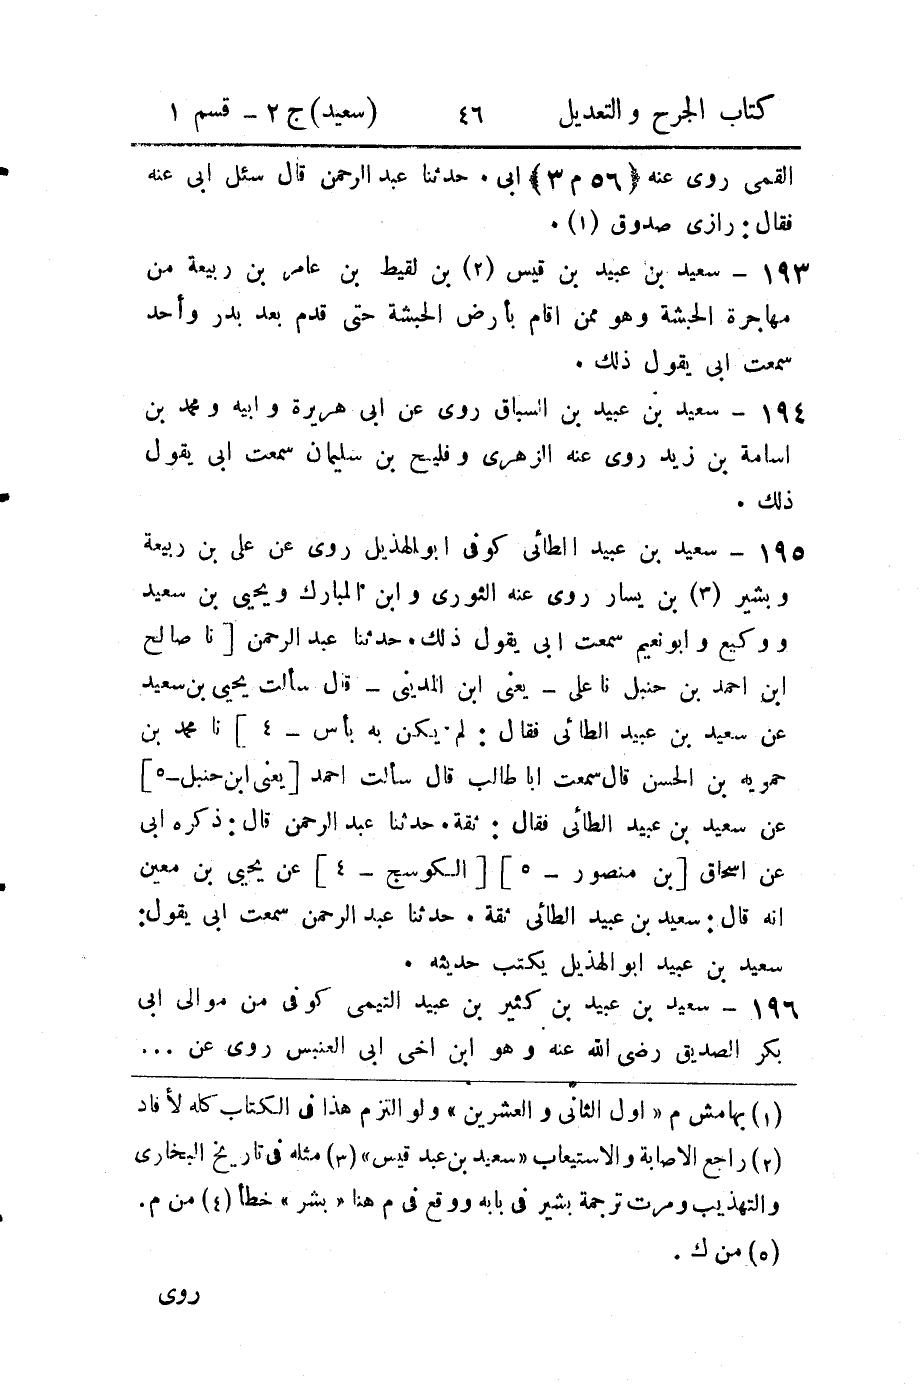 كتاب الجرح والتعديل ٤٦ (سعيد) ج ٢ - قسم ١
القمى روى عنه ﴿٥٦ م ٣﴾ ابى . حدثنا عبد الرحمن قال سئل ابى عنه
فقال : رازى صدوق (١) .
١٩٣ - سعيد بن عبيد بن قيس (٢) بن لقيط بن عامر بن ربيعة من
مهاجرة الحبشة وهو ممن اقام بأرض الحبشة حتى قدم بعد بدر وأحد
سمعت ابى يقول ذلك .
١٩٤ - سعيد بن عبيد بن السباق روى عن ابى هريرة وابيه ومحمد بن
اسامة بن زيد روى عنه الزهرى وفليح بن سليمان سمعت ابى يقول
ذلك .
١٩٥ - سعيد بن عبيد الطائى كوفى ابوالهذيل روى عن على بن ربيعة
وبشير (٣) بن يسار روى عنه الثورى وابن المبارك ويحيى بن سعيد
ووكيع وابونعيم سمعت ابى يقول ذلك . حدثنا عبد الرحمن [ نا صالح
ابن احمد بن حنبل نا على - يعنى ابن المدينى - قال سألت يحيى بن سعيد
عن سعيد بن عبيد الطائى فقال : لم يكن به بأس - ٤ ] نا محمد بن
حمويه بن الحسن قال سمعت ابا طالب قال سألت احمد [ يعنى ابن حنبل - ٥ ]
عن سعيد بن عبيد الطائى فقال : ثقة . حدثنا عبد الرحمن قال : ذكره ابى
عن اسحاق [ بن منصور - ٥ ] [ الكوسج - ٤ ] عن يحيى بن معين
انه قال : سعيد بن عبيد الطائى ثقة . حدثنا عبد الرحمن سمعت ابى يقول :
سعيد بن عبيد ابو الهذيل يكتب حديثه .
١٩٦ - سعيد بن عبيد بن كثير بن عبيد التيمى كوفى من موالى ابى
بكر الصديق رضى الله عنه وهو ابن اخى ابى العنبس روى عن ...
(١) بهامش م « اول الثانى والعشرين » ولو التزم هذا فى الكتاب كله لأفاد
(٢) راجع الاصابة والاستيعاب « سعيد بن عبد قيس » (٣) مثله فى تاريخ البخارى
والتهذيب ومرت ترجمة بشير فى بابه ووقع فى م هنا « بشر » خطأ (٤) من م .
(٥) من ك .
روى